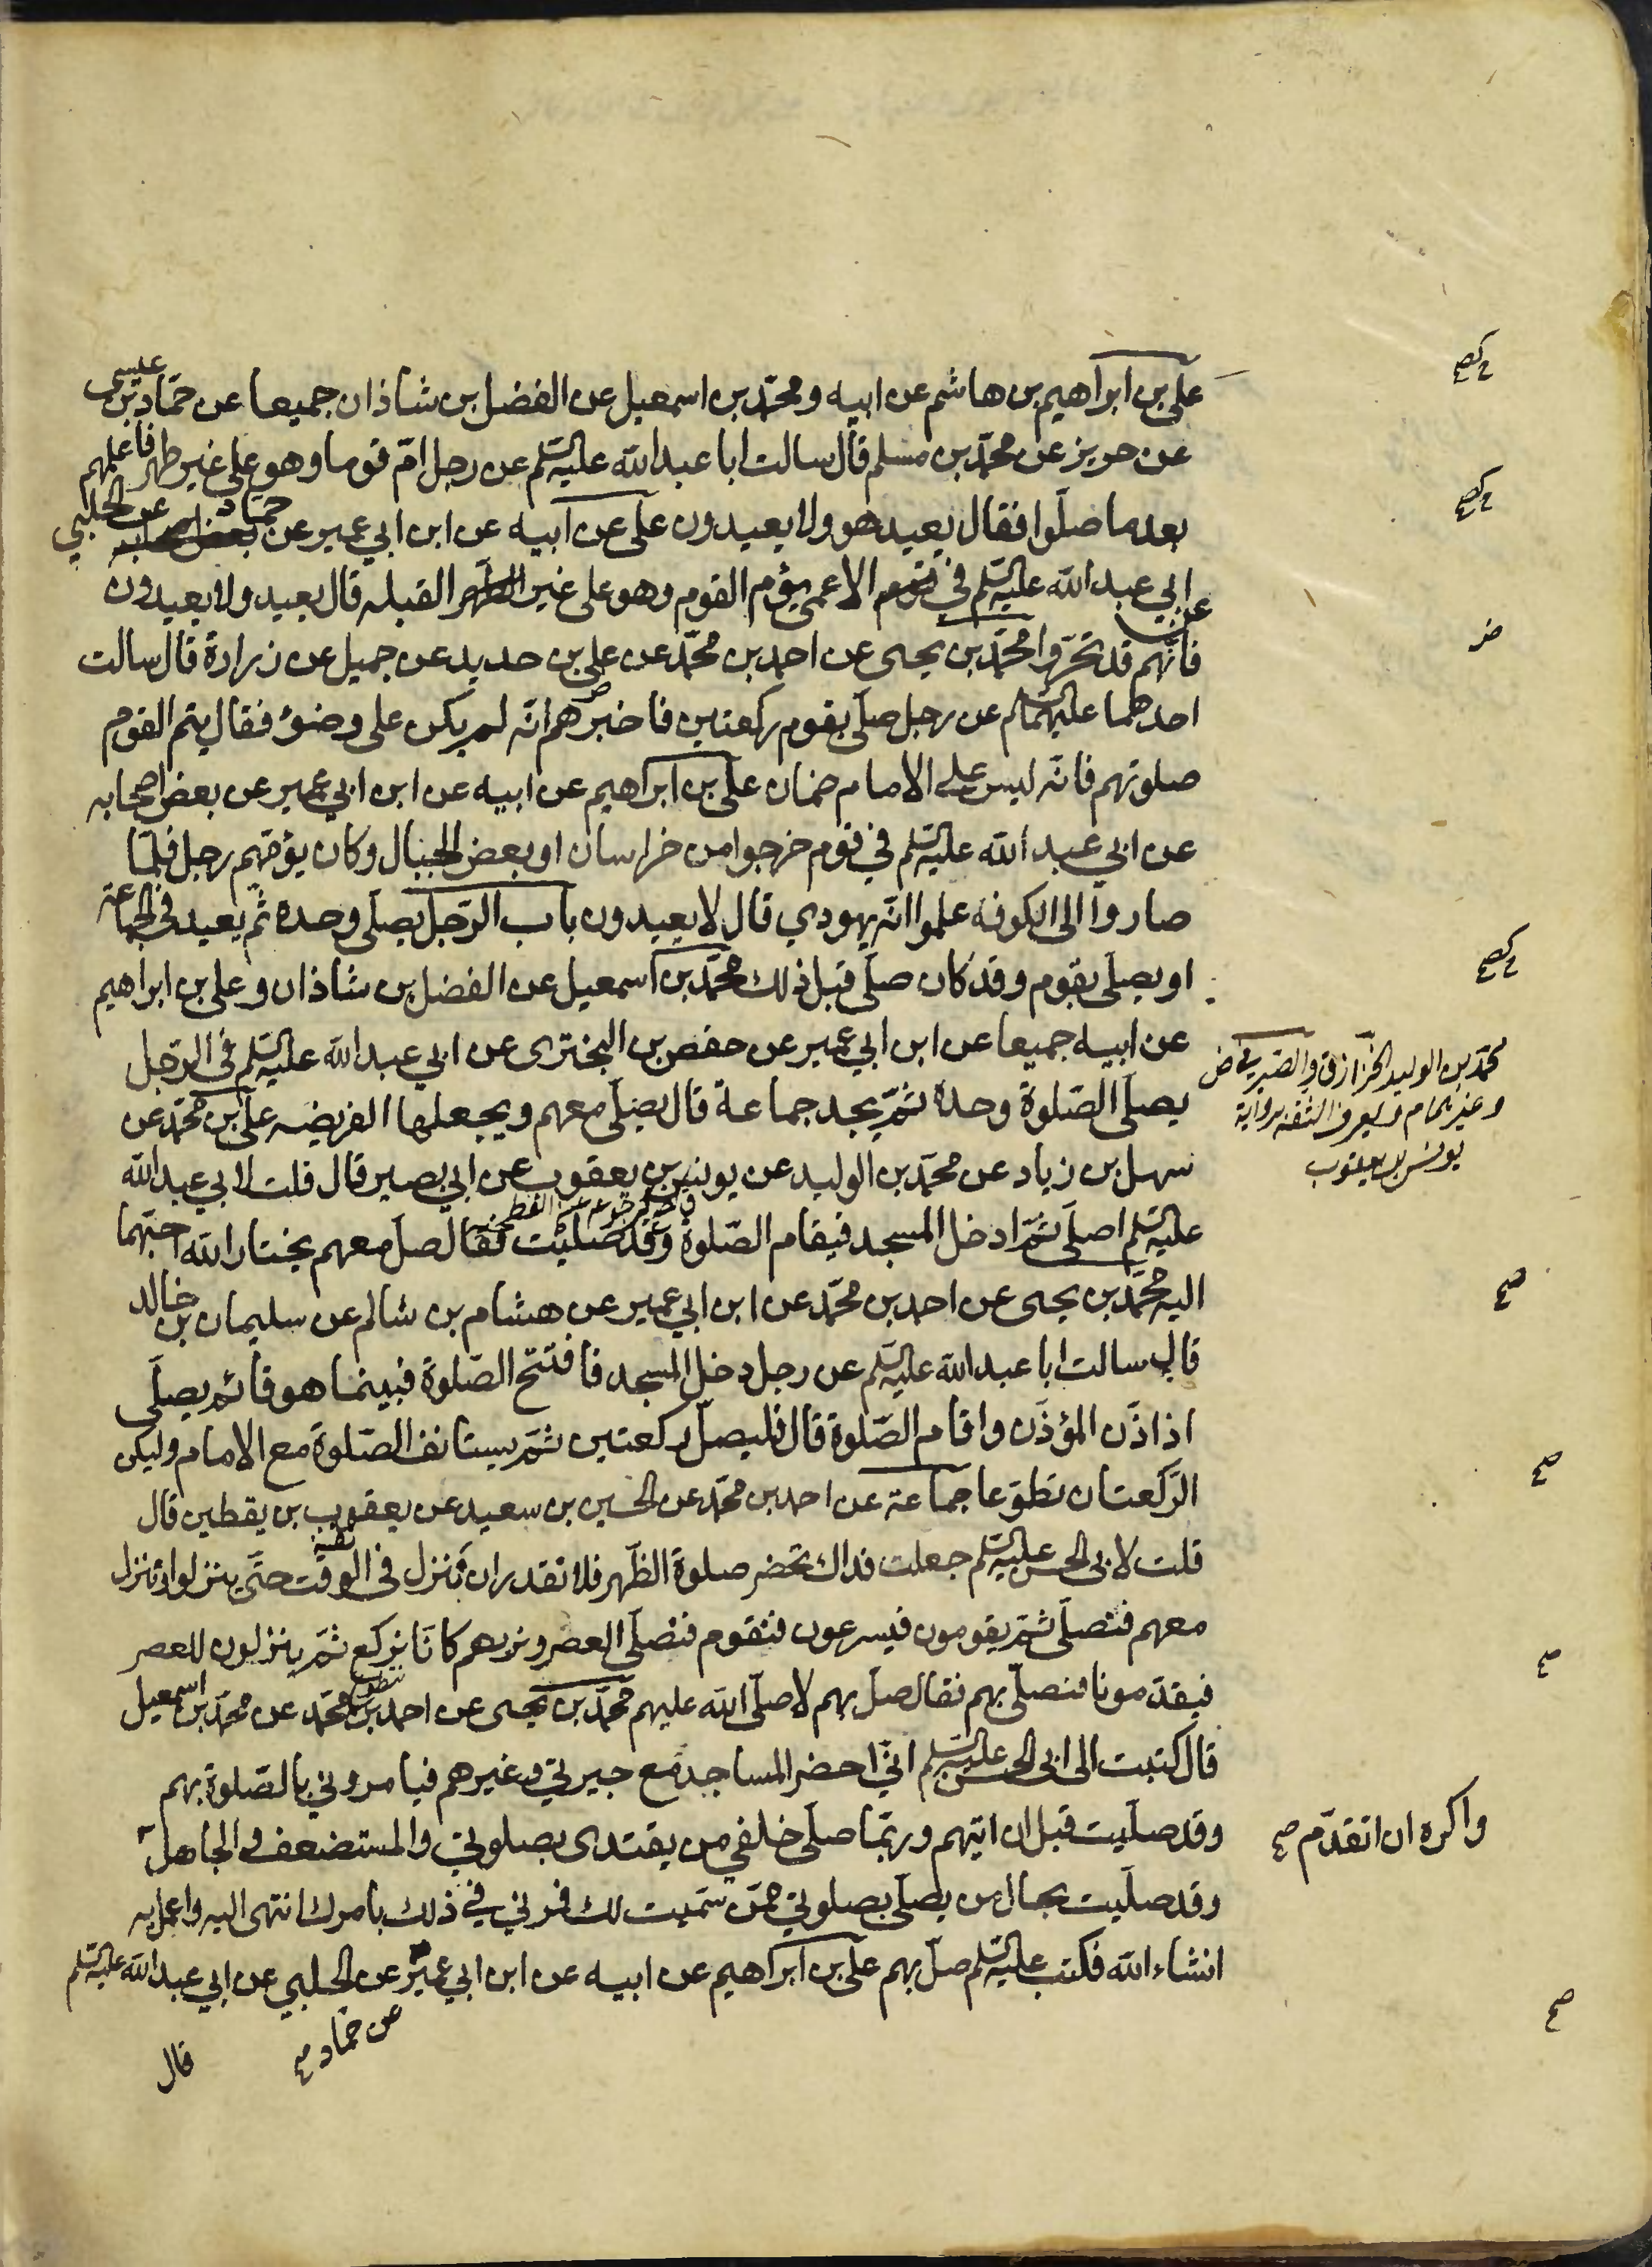 على بن ابراهيم بن هاشم عن ابيه ومحمّد بن اسمعيل عن الفضل بن شاذان جميعا عن حمّاد بن عيسى
عن حريز عن محمّد بن مسلم قال سالت ابا عبدالله عليه السّلم عن رجل امّ قوما وهو على غير طهر فاعلمهم
بعد ما صلّوا فقال يعيد هو ولا يعيدون على عن ابيه عن ابن ابي عمير عن حماد عن الحلبي
عن ابي عبد الله عليه السّلم في الاعمى يؤم القوم وهو على غير القبله قال يعيد ولا يعيدون
فانّهم قد تحرّوا محمّد بن يحيى عن احمد بن محمّد عن على بن حديد عن جميل عن زرارة قال سالت
احدهما عليهما السّلام عن رجل صلّى بقوم ركعتين فاخبرهم انّه لم يكن على وضوء فقال يتم القوم
صلوتهم فانّه ليس على الامام ضمان على بن ابراهيم عن ابيه عن ابن ابي عمير عن بعض اصحابه
عن ابي عبد الله عليه السّلم في قوم خرجوا من خراسان او بعض الجبال وكان يؤمّهم رجل فلمّا
صاروا الى الكوفه علموا انّه يهودي قال لا يعيدون باب الرّجل يصلّى وحده ثم يعيد في الجماعة
او يصلّى بقوم وقد كان صلّى قبل ذلك محمّد بن اسمعيل عن الفضل بن شاذان وعلى بن ابراهيم
عن ابيه جميعا عن ابن ابي عمير عن حفص بن البخترى عن ابي عبد الله عليه السّلم في الرّجل
يصلّى الصّلوة وحده ثمّ يجد جماعة قال يصلّى معهم ويجعلها الفريضه على بن محمّد عن
سهل بن زياد عن محمّد بن الوليد عن يونس بن يعقوب عن ابي بصير قال قلت لابي عبد الله
عليه السّلم اصلّى ثمّ ادخل المسجد فيقام الصّلوة وقد صلّيت فقال صلّ معهم يختار الله احبّهما
اليه محمّد بن يحيى عن احمد بن محمّد عن ابن ابي عمير عن هشام بن سالم عن سليمان بن خالد
قال سالت ابا عبد الله عليه السّلم عن رجل دخل المسجد فافتتح الصّلوة فبينما هو قائم يصلّى
اذ اذّن المؤذّن واقام الصّلوة قال فليصلّ ركعتين ثمّ يستانف الصّلوة مع الامام وليكن
الرّكعتان تطوّعا جماعة عن احمد بن محمّد عن الحسين بن سعيد عن يعقوب بن يقطين قال
قلت لابي الحسن عليه السّلم جعلت فداك تحضر صلوة الظّهر فلا نقدر ان ننزل في الوقت حتّى ينزلوا وننزل
معهم فنصلّى ثمّ يقومون فيسرعون فنقوم فنصلّى العصر ونريهم كانّا نركع ثمّ ينزلون للعصر
فيقدّمونا فنصلّى بهم فقال صلّ بهم لا صلّى الله عليهم محمّد بن يحيى عن احمد بن محمّد عن محمّد بن اسمعيل
قال كتبت الى ابى الحسن عليه السّلم انّي احضر المساجد مع جيرتي وغيرهم فيامروني بالصّلوة بهم
وقد صلّيت قبل ان اتيهم وربّما صلّى خلفي من يقتدى بصلوتي والمستضعف والجاهل
واكره ان اتقدّم صح
وقد صلّيت بحال من يصلّى بصلوتي ممّن سمّيت لك فمرني في ذلك بامرك انتهى اليه واعمل به
انشاء الله فكتب عليه السّلم صلّ بهم على بن ابراهيم عن ابيه عن ابن ابي عمير عن الحلبي عن ابي عبد الله عليه السّلم
عن حماد صح
قال
محمّد بن الوليد الخزّاز ق والصيرفي ض
يونس بن يعقوب